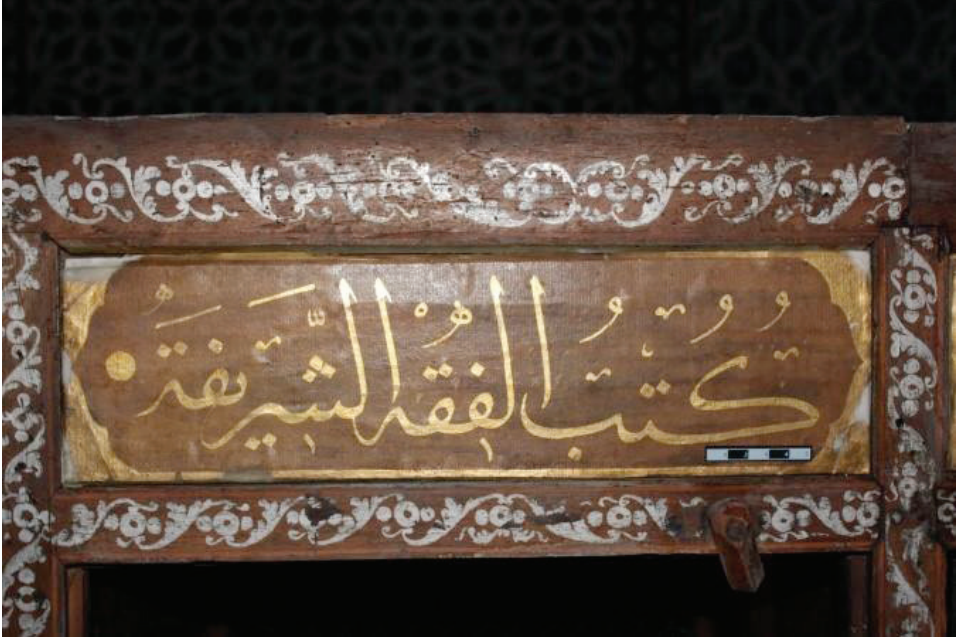 كُتُبُ الفِقْهِ الشَّرِيفَةِ